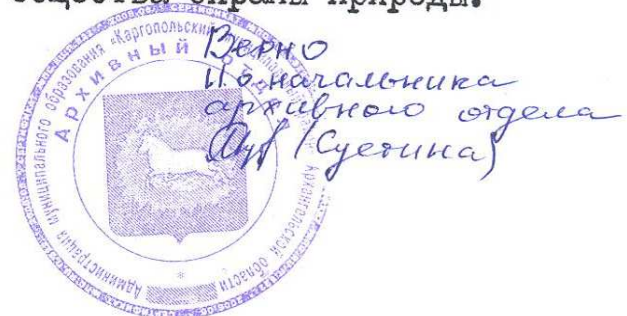 общества охраны природы.
Верно
И.о начальника
архивного отдела
(Суетина)
Администрация муниципального образования «Каргопольский муниципальный район» Архангельской области
Архивный отдел